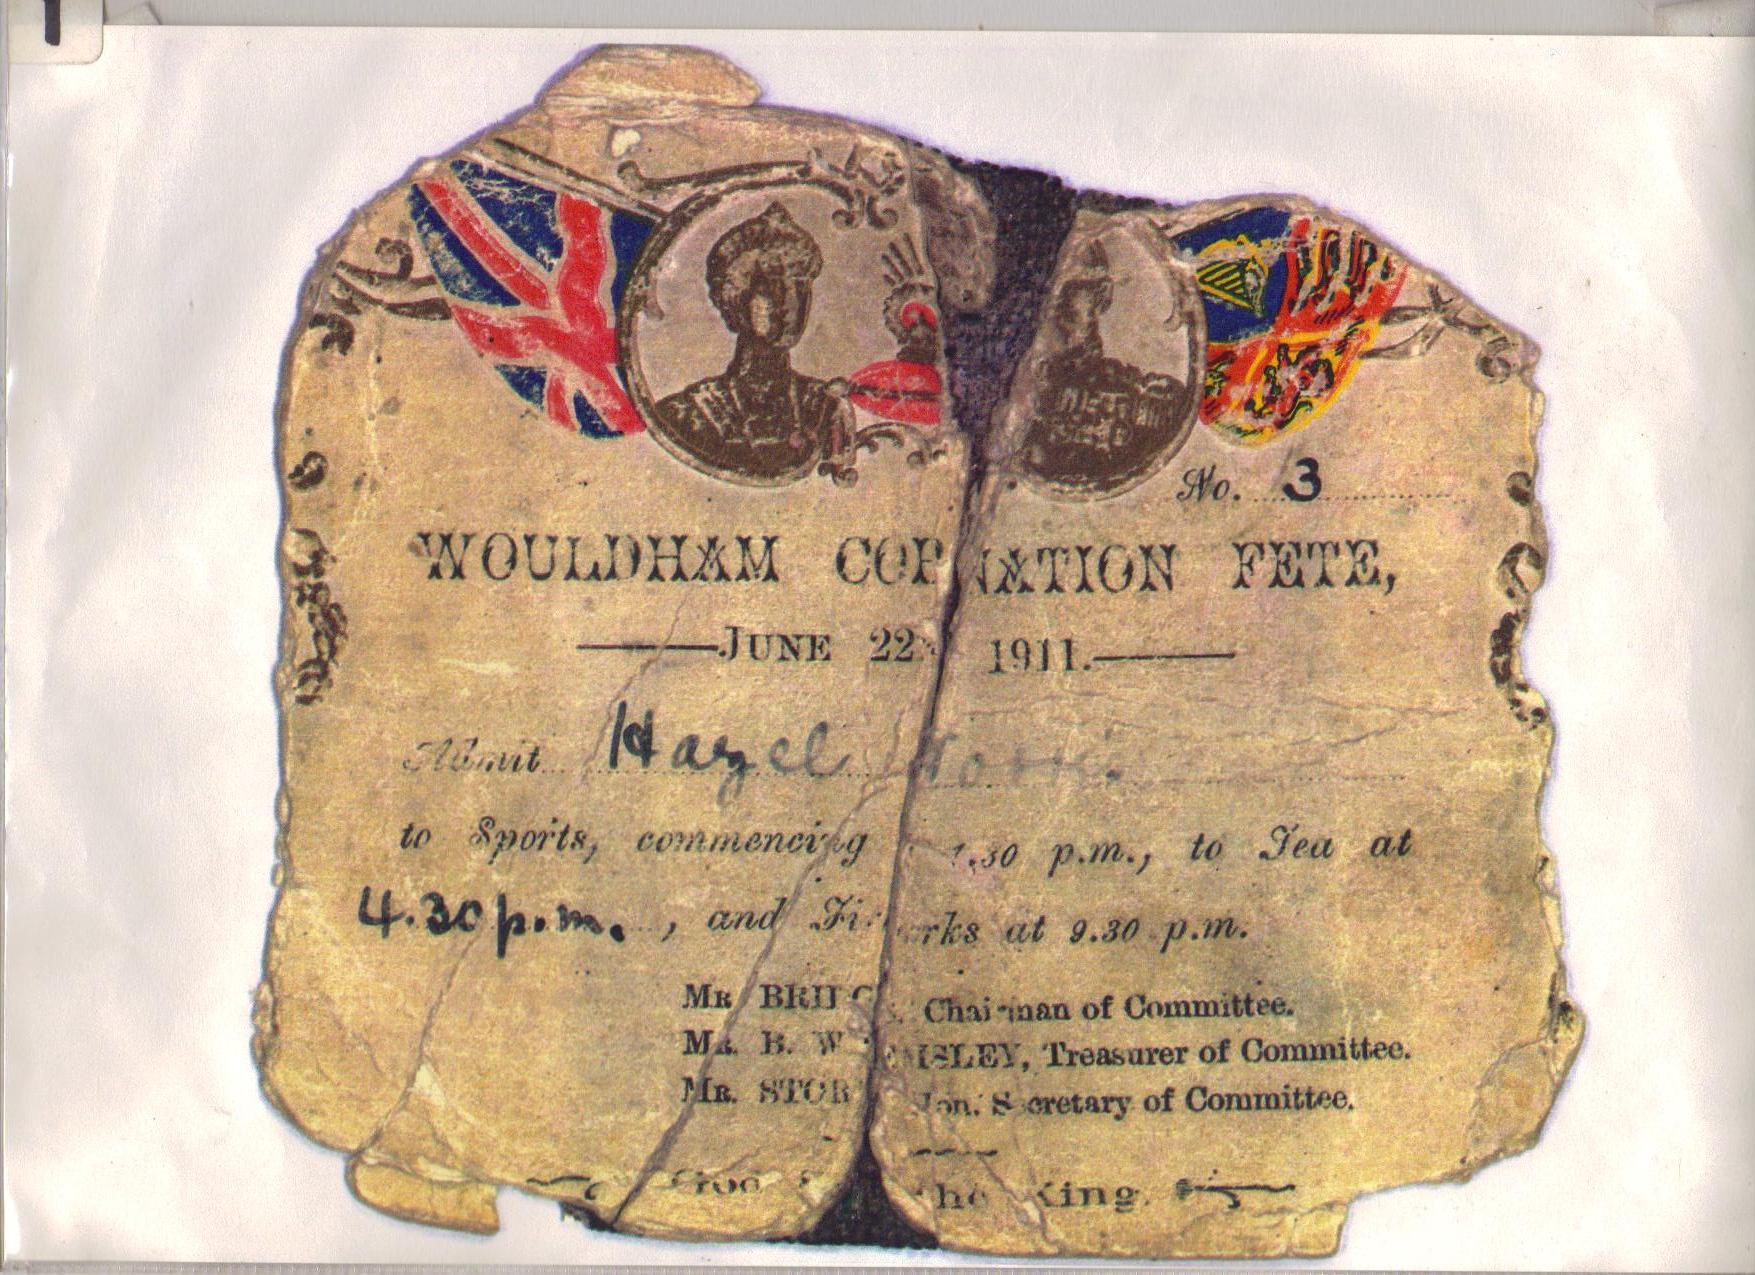 1
No. 3
WOULDHAM CORONATION FETE,
JUNE 22 1911.
Admit Hazel
to Sports, commencing 1.30 p.m., to Tea at
4.30 p.m., and Fireworks at 9.30 p.m.
MR Chairman of Committee.
MR. B. W Treasurer of Committee.
MR. Hon. Secretary of Committee.
God the King.